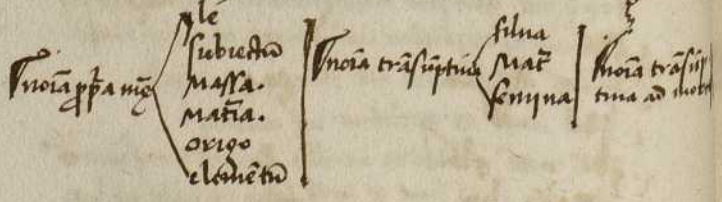 Noīa ꝓpͥa mē
yle
subiectū
Massa.
Mat̄ia.
origo
elemētū
Noīa trāsūptiua
silua
Mat̄
femina
Noīa trāsūp
tiua ad